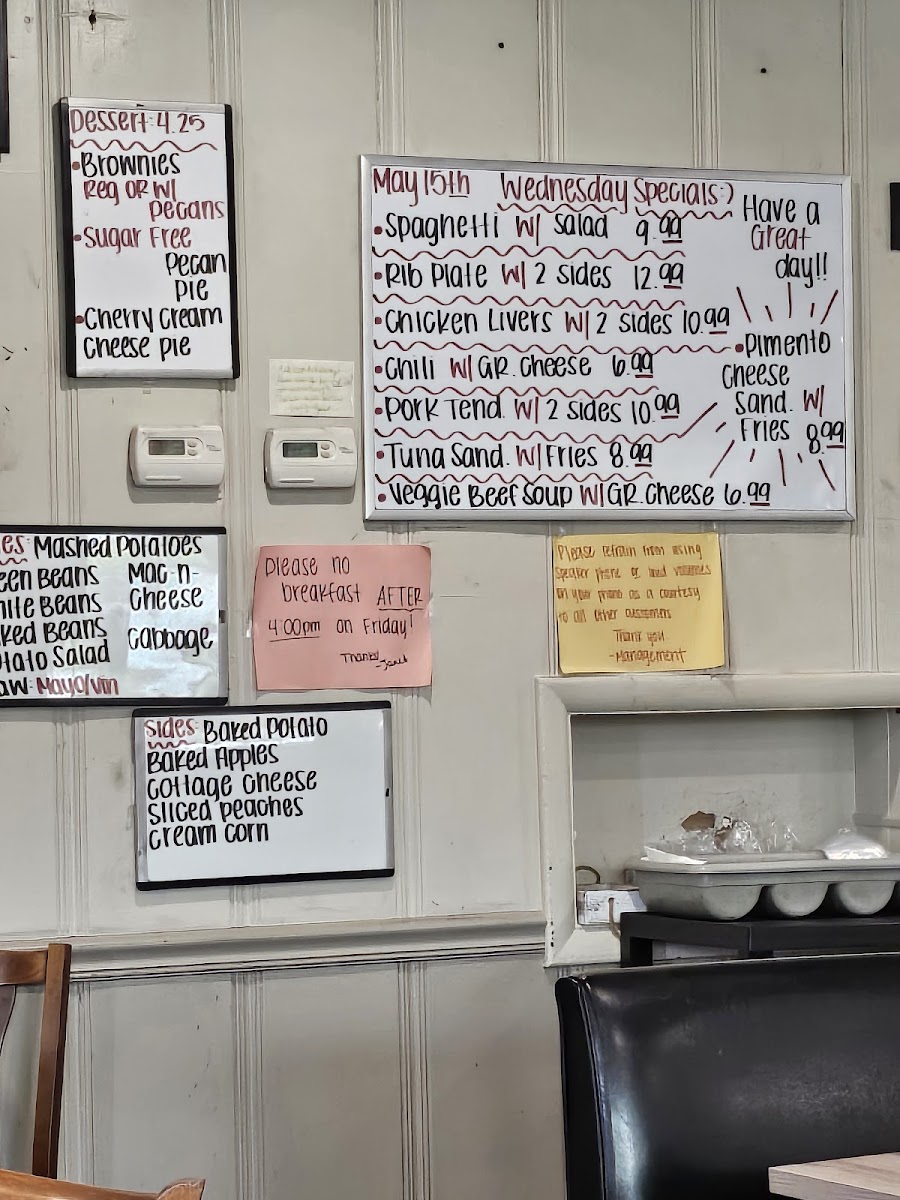 Dessert 4.25
• Brownies
Reg OR W/
Pecans
• Sugar Free
Pecan
Pie
• Cherry Cream
Cheese Pie
May 15th Wednesday Specials:)
• Spaghetti W/ Salad 9.99
• Rib Plate W/ 2 sides 12.99
• Chicken Livers W/ 2 sides 10.99
• Chili W/ GR. Cheese 6.99
• Pork Tend. W/ 2 sides 10.99
• Tuna Sand. W/ Fries 8.99
• Veggie Beef Soup W/ GR. Cheese 6.99
Have a
Great
day!!
• Pimento
Cheese
Sand. W/
Fries 8.99
es: Mashed Potatoes
een Beans
hite Beans
ked Beans
otato Salad
aw: Mayo/Vin
Mac-n-
Cheese
Cabbage
Please no
breakfast AFTER
4:00pm on Friday!
Thanks
Please refrain from using
Speaker phone or loud volumes
on your phone as a courtesy
to all other customers
Thank you
-Management
Sides: Baked Potato
Baked Apples
Cottage Cheese
Sliced Peaches
Cream Corn